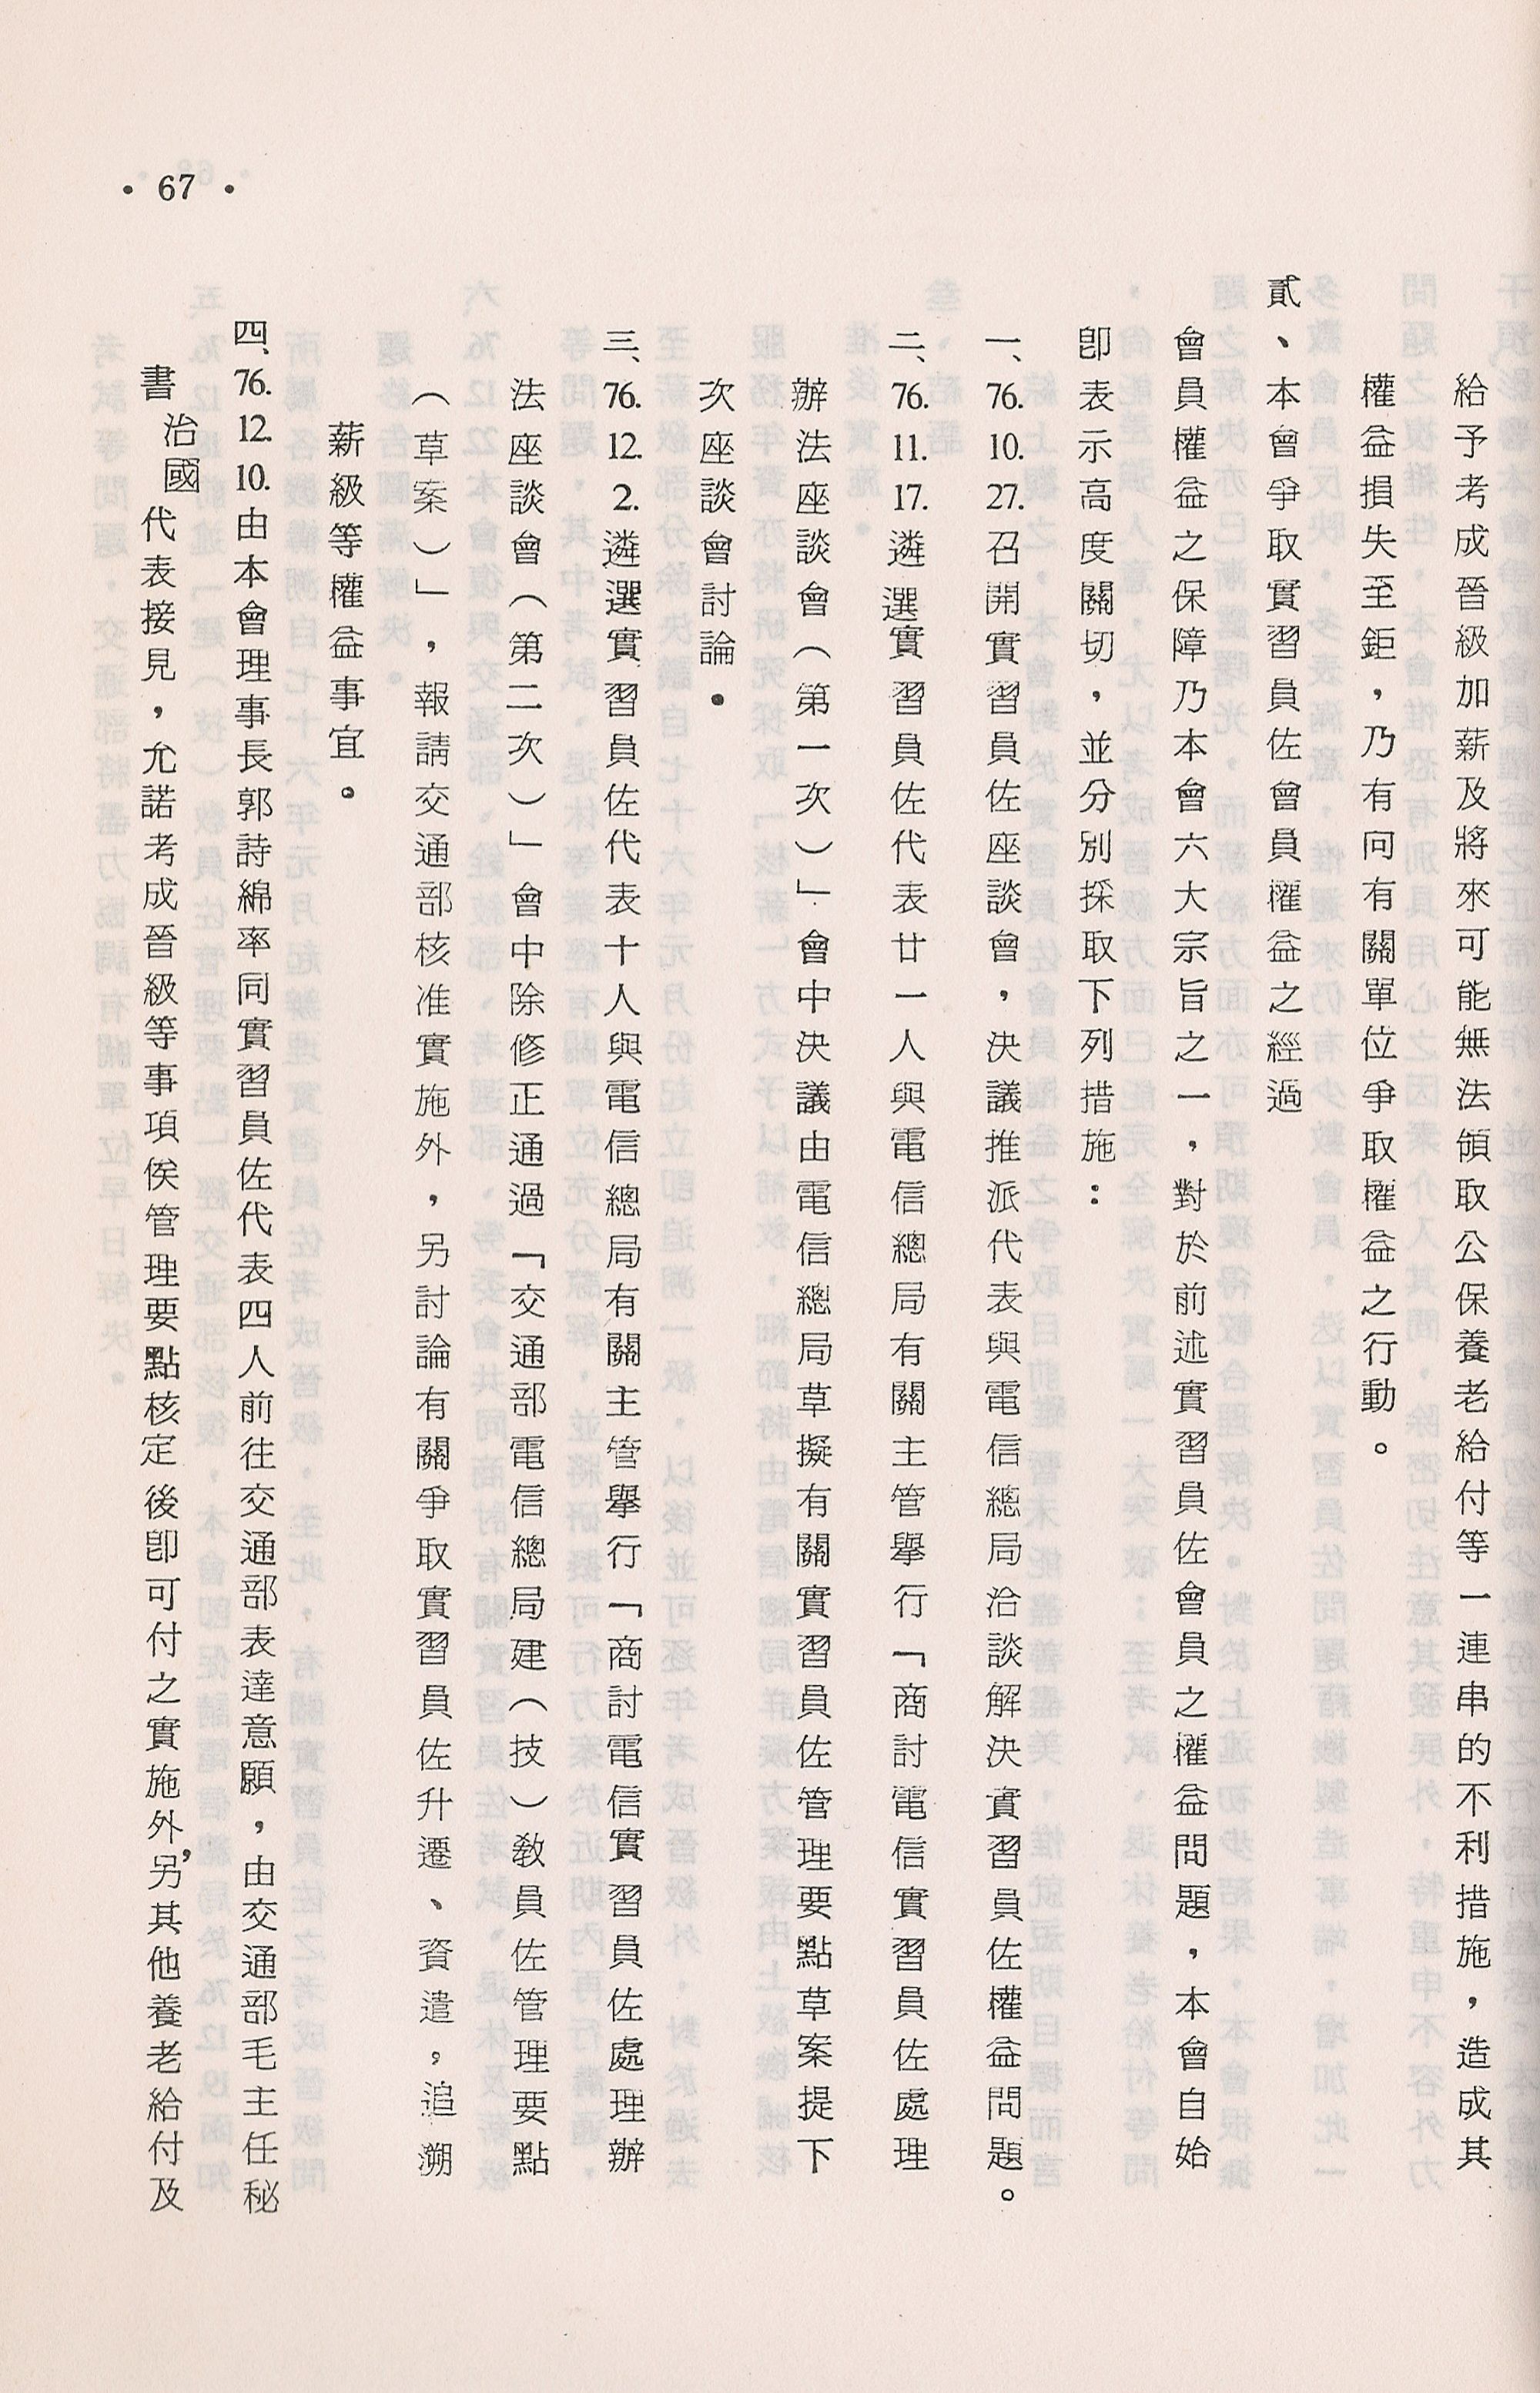 給予考成晉級加薪及將來可能無法領取公保養老給付等一連串的不利措施，造成其
權益損失至鉅，乃有向有關單位爭取權益之行動。
貳、本會爭取實習員佐會員權益之經過
會員權益之保障乃本會六大宗旨之一，對於前述實習員佐會員之權益問題，本會自始
卽表示高度關切，並分別採取下列措施：
一、76.10.27.召開實習員佐座談會，決議推派代表與電信總局洽談解決實習員佐權益問題。
二、76.11.17.遴選實習員佐代表廿一人與電信總局有關主管舉行「商討電信實習員佐處理
辦法座談會（第一次）」會中決議由電信總局草擬有關實習員佐管理要點草案提下
次座談會討論。
三、76.12.2.遴選實習員佐代表十人與電信總局有關主管舉行「商討電信實習員佐處理辦
法座談會（第二次）」會中除修正通過「交通部電信總局建（技）教員佐管理要點
（草案）」，報請交通部核准實施外，另討論有關爭取實習員佐升遷、資遣，追溯
薪級等權益事宜。
四、76.12.10.由本會理事長郭詩綿率同實習員佐代表四人前往交通部表達意願，由交通部毛主任秘
書治國代表接見，允諾考成晉級等事項俟管理要點核定後卽可付之實施外，另其他養老給付及
• 67 •